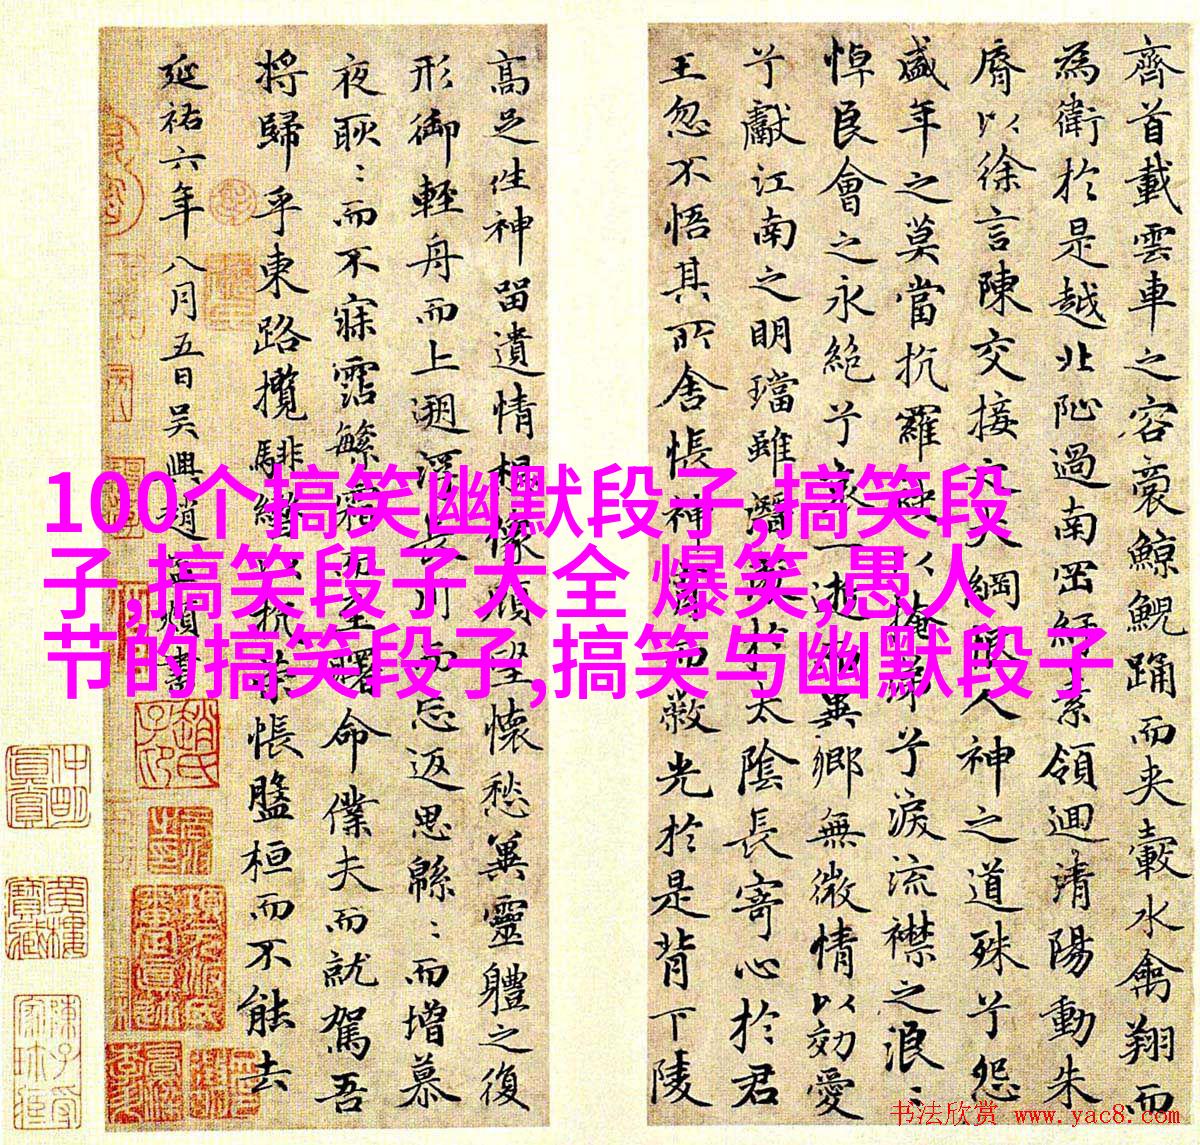 齊首載雲車之容裔鯨鯢踊而夾轂水禽翔而
為衛於是越北沚過南岡紆素領迴清陽動朱
脣以徐言陳交接之大綱恨人神之道殊兮怨
盛年之莫當抗羅袂以掩涕兮淚流襟之浪〻
悼良會之永絕兮哀一逝而異鄉無微情以効愛
兮獻江南之明璫雖潛處於太陰長寄心於君
王忽不悟其所舍悵神宵而蔽光於是背下陵
高足往神留遺情想像顧望懷愁冀靈體之復
形御輕舟而上遡浮長川而忘返思緜〻而增慕
夜耿〻而不寐霑繁霜而至曙命僕夫而就駕吾
將歸乎東路攬騑轡以抗策悵盤桓而不能去
延祐六年八月五日吳興趙孟頫書
100个搞笑幽默段子,搞笑段
子,搞笑段子大全 爆笑,愚人
节的搞笑段子,搞笑与幽默段子
书法欣赏 www.yac8.com